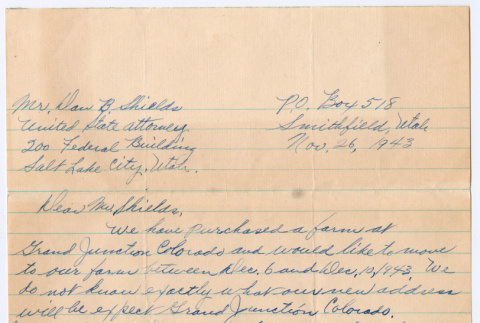 Mr. Dan B Shields
United State attorney
200 Federal Building
Salt Lake City, Utah.
P.O. Box 518
Smithfield, Utah
Nov. 26, 1943
Dear Mr Shields,
We have purchased a farm at
Grand Junction Colorado and would like to move
to our farm between Dec. 6 and Dec, 10, 1943. We
do not know exactly what our new address
will be expect Grand Junction Colorado.